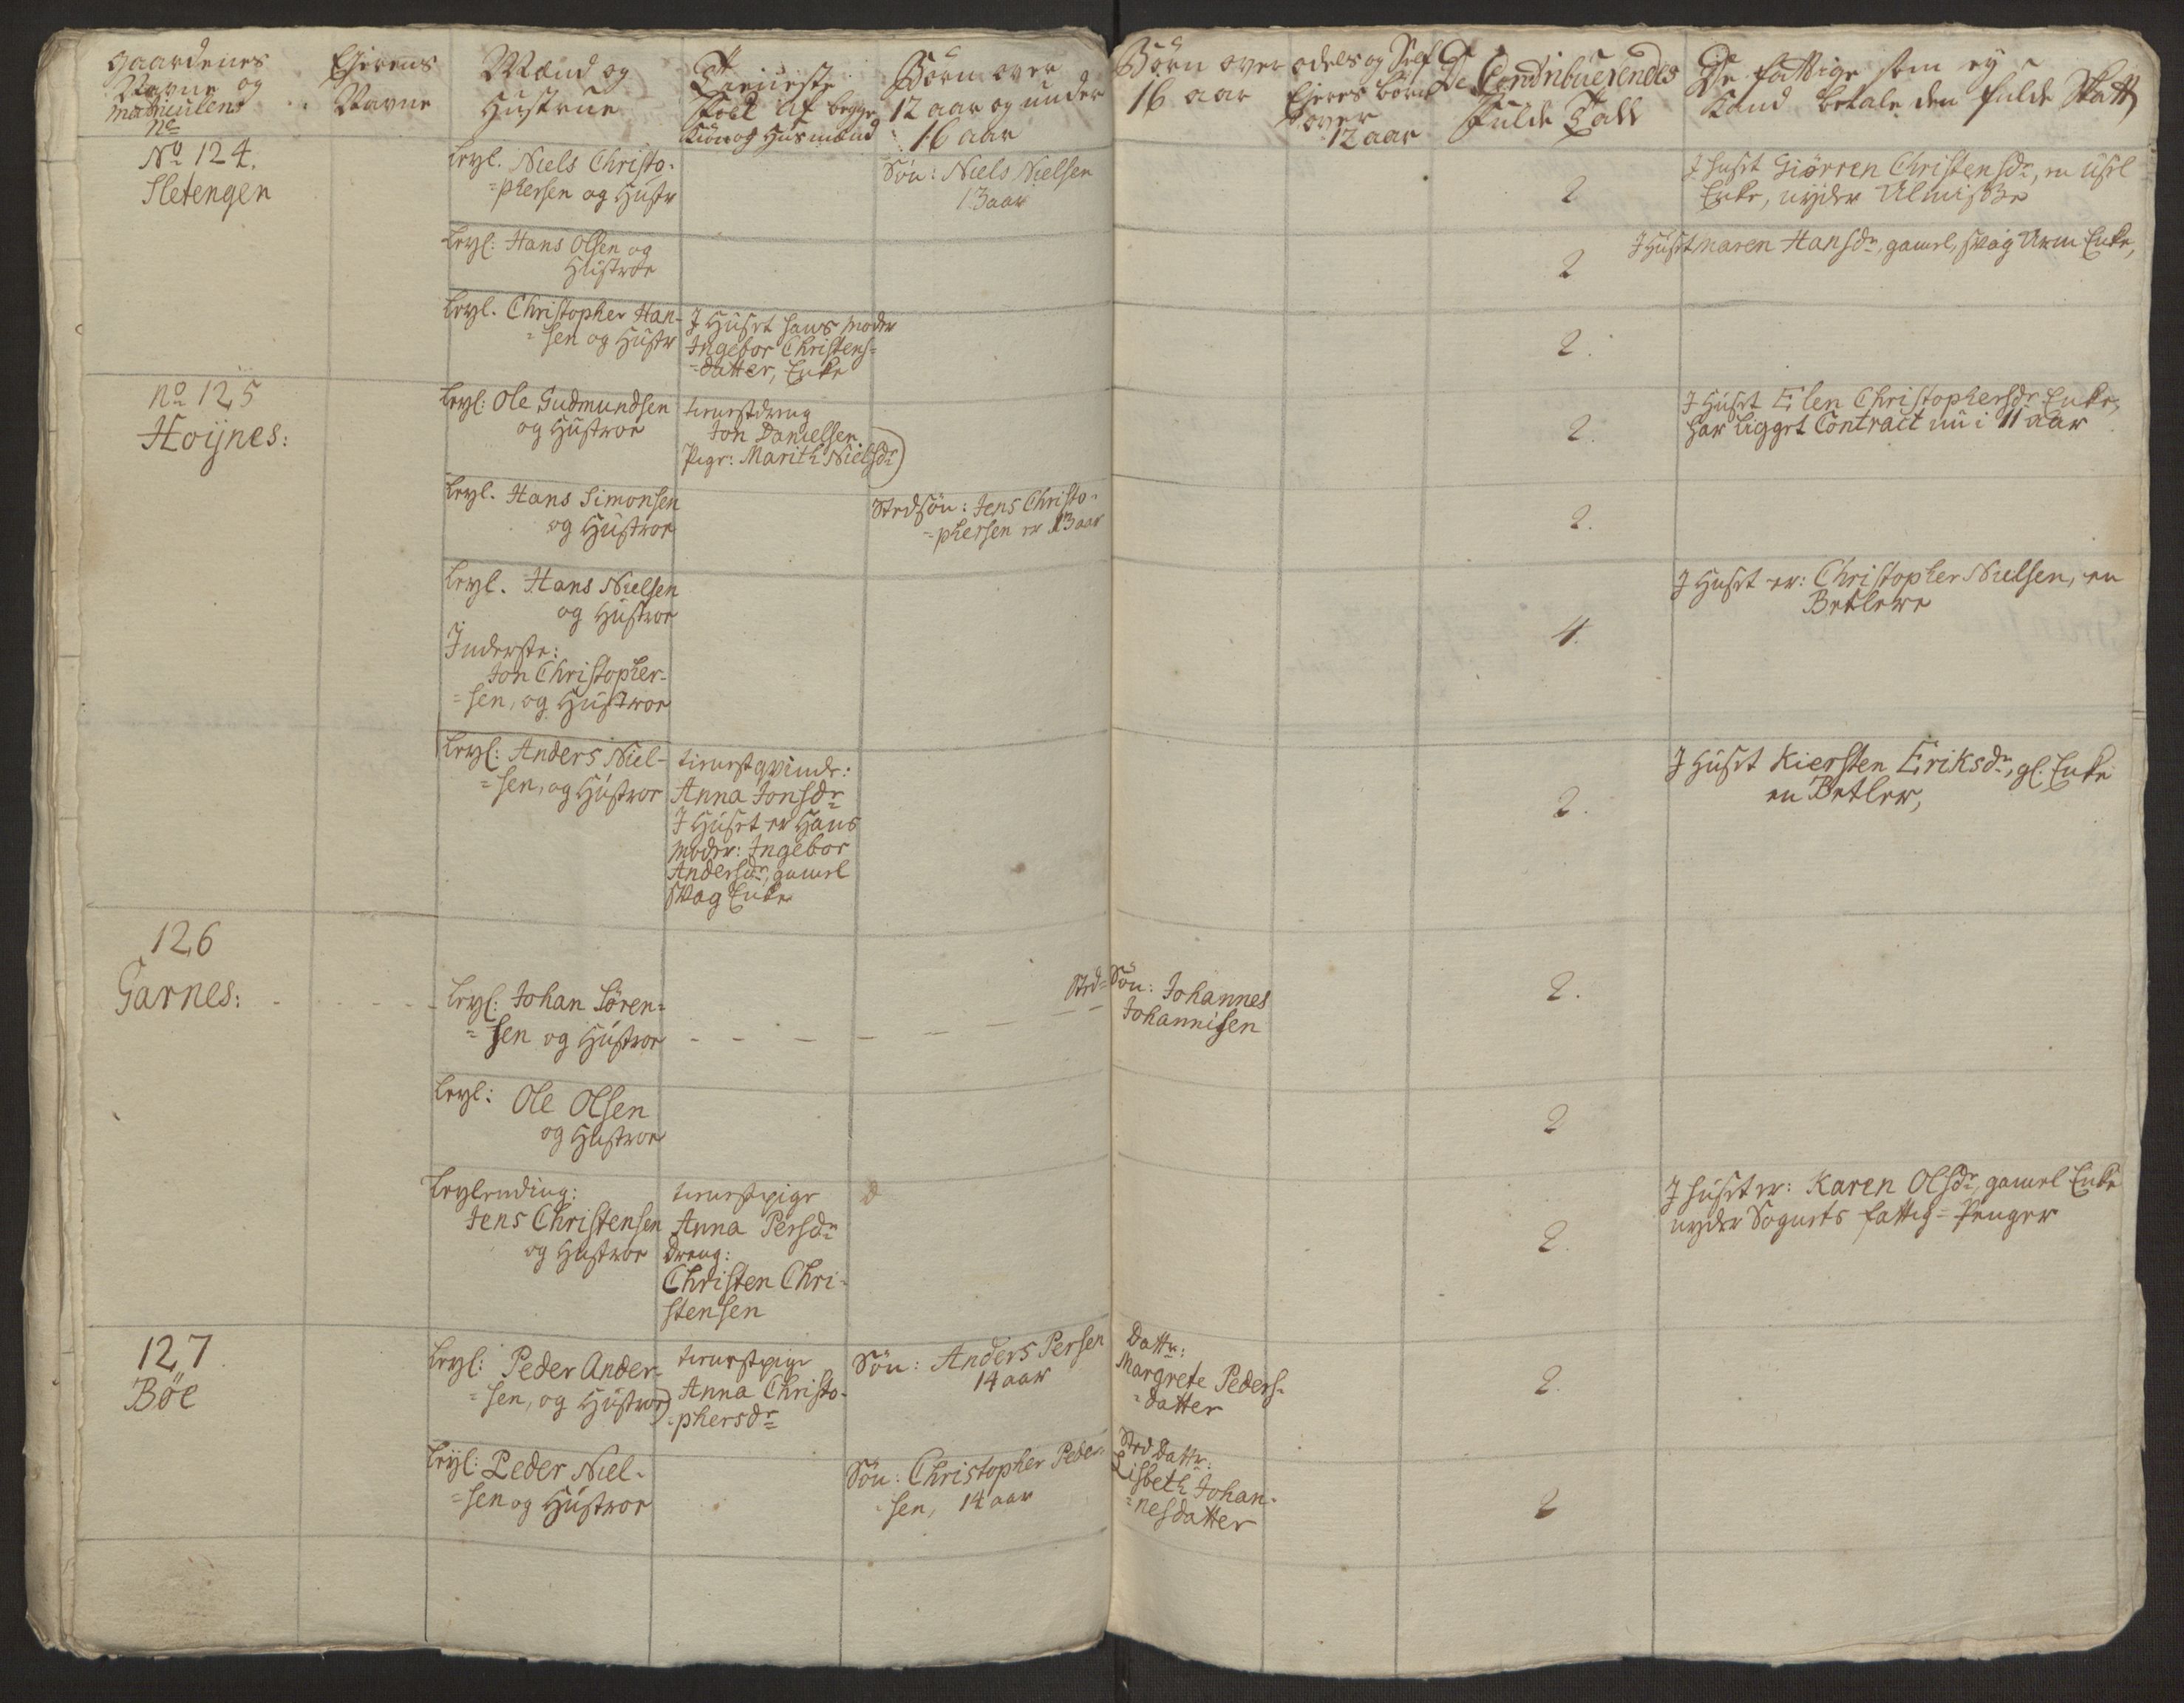 Gaardenes
Navne og
Matriculens
No
Ejerens
Navne
Mænd og
Hustrue
Tieneste
Folk af begge
Kiön og Husmænd
Börn over
12 aar og under
16 aar
Börn over
16 aar
odels og Self
Ejeres börn
over
12 aar
De Contribuerendes
Fulde Tall
De fattige som ey
Kand betale den fulde Skatt
No 124.
Sletengen
Leyl. Niels Christo-
=phersen og Hustr
Sön: Niels Nielsen
13 aar
2
J Huset Giörren Christensdr, en Usel
Enke, nyder Almisse
Leyl: Hans Olsen og
Hustroe
2
J Huset Maren Hansdr, gamel, svag Arm Enke,
Leyl. Christopher Han-
=sen og Hustr
J Huset hans Moder
Ingebor Christens=
=datter, Enke
2.
No 125
Hoijnes:
Leyl: Ole Gudmundsen
og Hustroe
tienestdreng
Jon Danielsen
Pige: Marith Nielsdr
2.
J Huset Elen Christophersdr Enke,
har ligget Contract nu i 11 aar
Leyl. Hans Simonsen
og Hustroe
Stedsön: Jens Christo-
=phersen er 13 aar
2.
Leyl. Hans Nielsen
og Hustroe
Inderste:
Jon Christopher-
=sen, og Hustroe
4.
J Huset er: Christopher Nielsen, en
Betlere
Leyl: Anders Niel-
=sen, og Hustroe
tienestqvinde:
Anna Jonsdr
J Huset er Hans
Moder: Ingebor
Andersdr, gamel
svag Enke
2.
J Huset Kiersten Eriksdr, gl. Enke
en Betler,
126
Garnes:
Leyl: Johan Sören=
=sen og Hustroe
Sted=Sön: Johannes
Johannisen
2.
Leyl: Ole Olsen
og Hustroe
2
Leylending:
Jens Christensen
og Hustroe
tienestpige
Anna Persdr
Dreng:
Christen Chri-
stensen
2.
J Huset er: Karen Olsdr, gamel Enke
nyder Sognets fattig=Penger
127
Böe
Leyl: Peder Ander-
=sen, og Hustroe
tienestpige
Anna Christo-
=phersdr
Sön: Anders Persen
14 aar
Dattr:
Margrete Peders-
=datter
2.
Leyl: Peder Niel-
=sen og Hustroe
Sön: Christopher Peder-
sen, 14 aar
Sted Dattr:
Lisbeth Johan-
=nesdatter
2